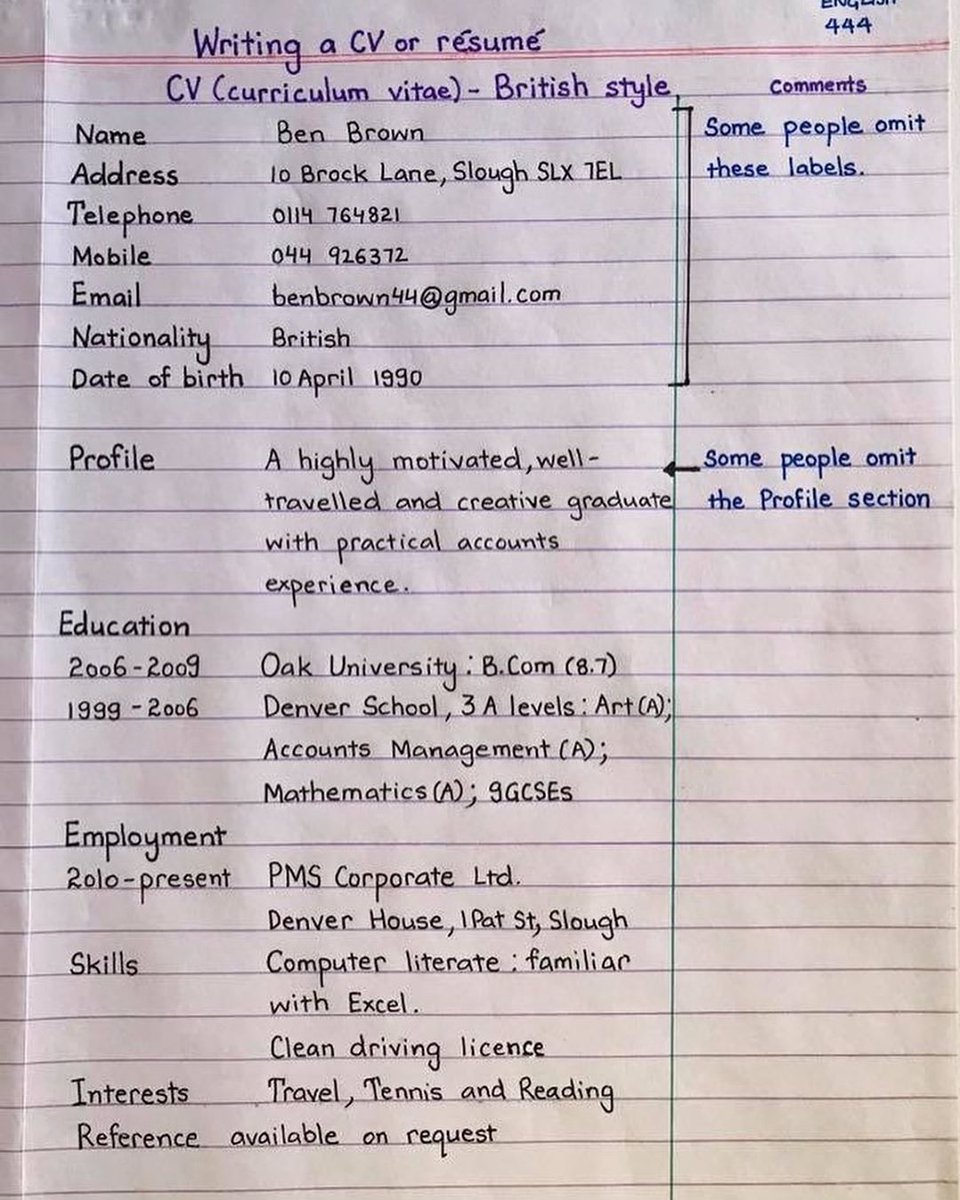 ENGLISH
444
Writing a CV or résumé
CV (curriculum vitae) - British style
Comments
Name Ben Brown
Some people omit
these labels.
Address 10 Brock Lane, Slough SLX 7EL
Telephone 0114 764821
Mobile 044 926372
Email benbrown44@gmail.com
Nationality British
Date of birth 10 April 1990
Profile A highly motivated, well-
travelled and creative graduate
with practical accounts
experience.
Some people omit
the Profile section
Education
2006-2009 Oak University: B.Com (8.7)
1999-2006 Denver School, 3 A levels: Art (A);
Accounts Management (A);
Mathematics (A); 9GCSEs
Employment
2010-present PMS Corporate Ltd.
Denver House, 1 Pat St, Slough
Skills Computer literate: familiar
with Excel.
Clean driving licence
Interests Travel, Tennis and Reading
Reference available on request